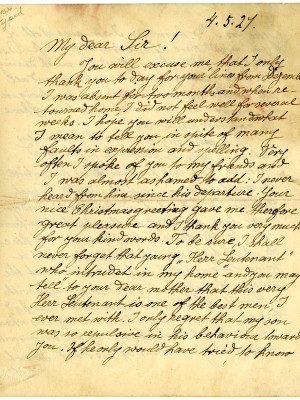 4. 5. 27.
My dear Sir!
You will excuse me that I only
thank you to day for your lines from Decemb
I was absent for two month, and when re-
tourned home, I did not feel well for several
weeks. I hope you will understand what
I mean to tell you in spite of many
faults in expression and spelling. Very
often I spoke of you to my friends and
I was almost ashamed to add: I never
heard from him since his departure. Your
nice Christmasgreeting gave me therefore
great pleasure and I thank you very much
for your kind words. To be sure, I shall
never forget that young "Herr Lieutenant"
who intruded in my home and you may
tell to your dear mother that this very
Herr Lieutenant is one of the best men, I
ever met with. I only regret that my son
was so repulsive in his behaviour toward
you. If he only would have tried to know